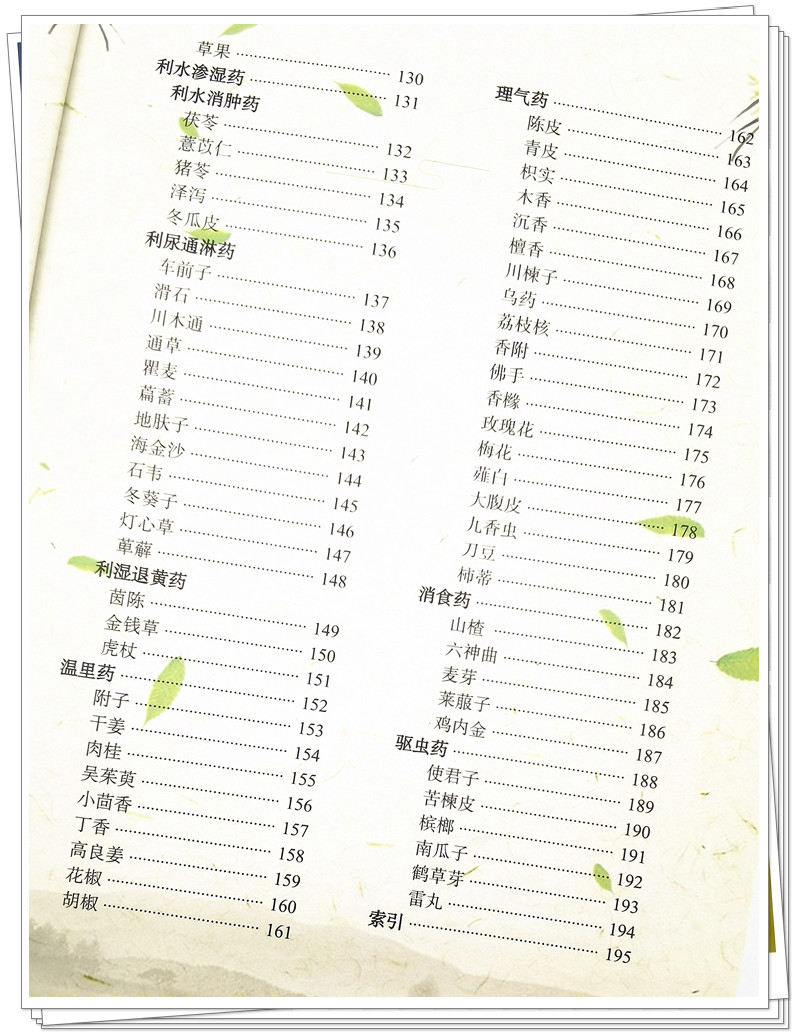 草果 130
利水渗湿药 131
利水消肿药
茯苓 132
薏苡仁 133
猪苓 134
泽泻 135
冬瓜皮 136
利尿通淋药
车前子 137
滑石 138
川木通 139
通草 140
瞿麦 141
萹蓄 142
地肤子 143
海金沙 144
石韦 145
冬葵子 146
灯心草 147
萆薢 148
利湿退黄药
茵陈 149
金钱草 150
虎杖 151
温里药 152
附子 153
干姜 154
肉桂 155
吴茱萸 156
小茴香 157
丁香 158
高良姜 159
花椒 160
胡椒 161
理气药 162
陈皮 163
青皮 164
枳实 165
木香 166
沉香 167
檀香 168
川楝子 169
乌药 170
荔枝核 171
香附 172
佛手 173
香橼 174
玫瑰花 175
梅花 176
薤白 177
大腹皮 178
九香虫 179
刀豆 180
柿蒂 181
消食药 182
山楂 183
六神曲 184
麦芽 185
莱菔子 186
鸡内金 187
驱虫药 188
使君子 189
苦楝皮 190
槟榔 191
南瓜子 192
鹤草芽 193
雷丸 194
索引 195